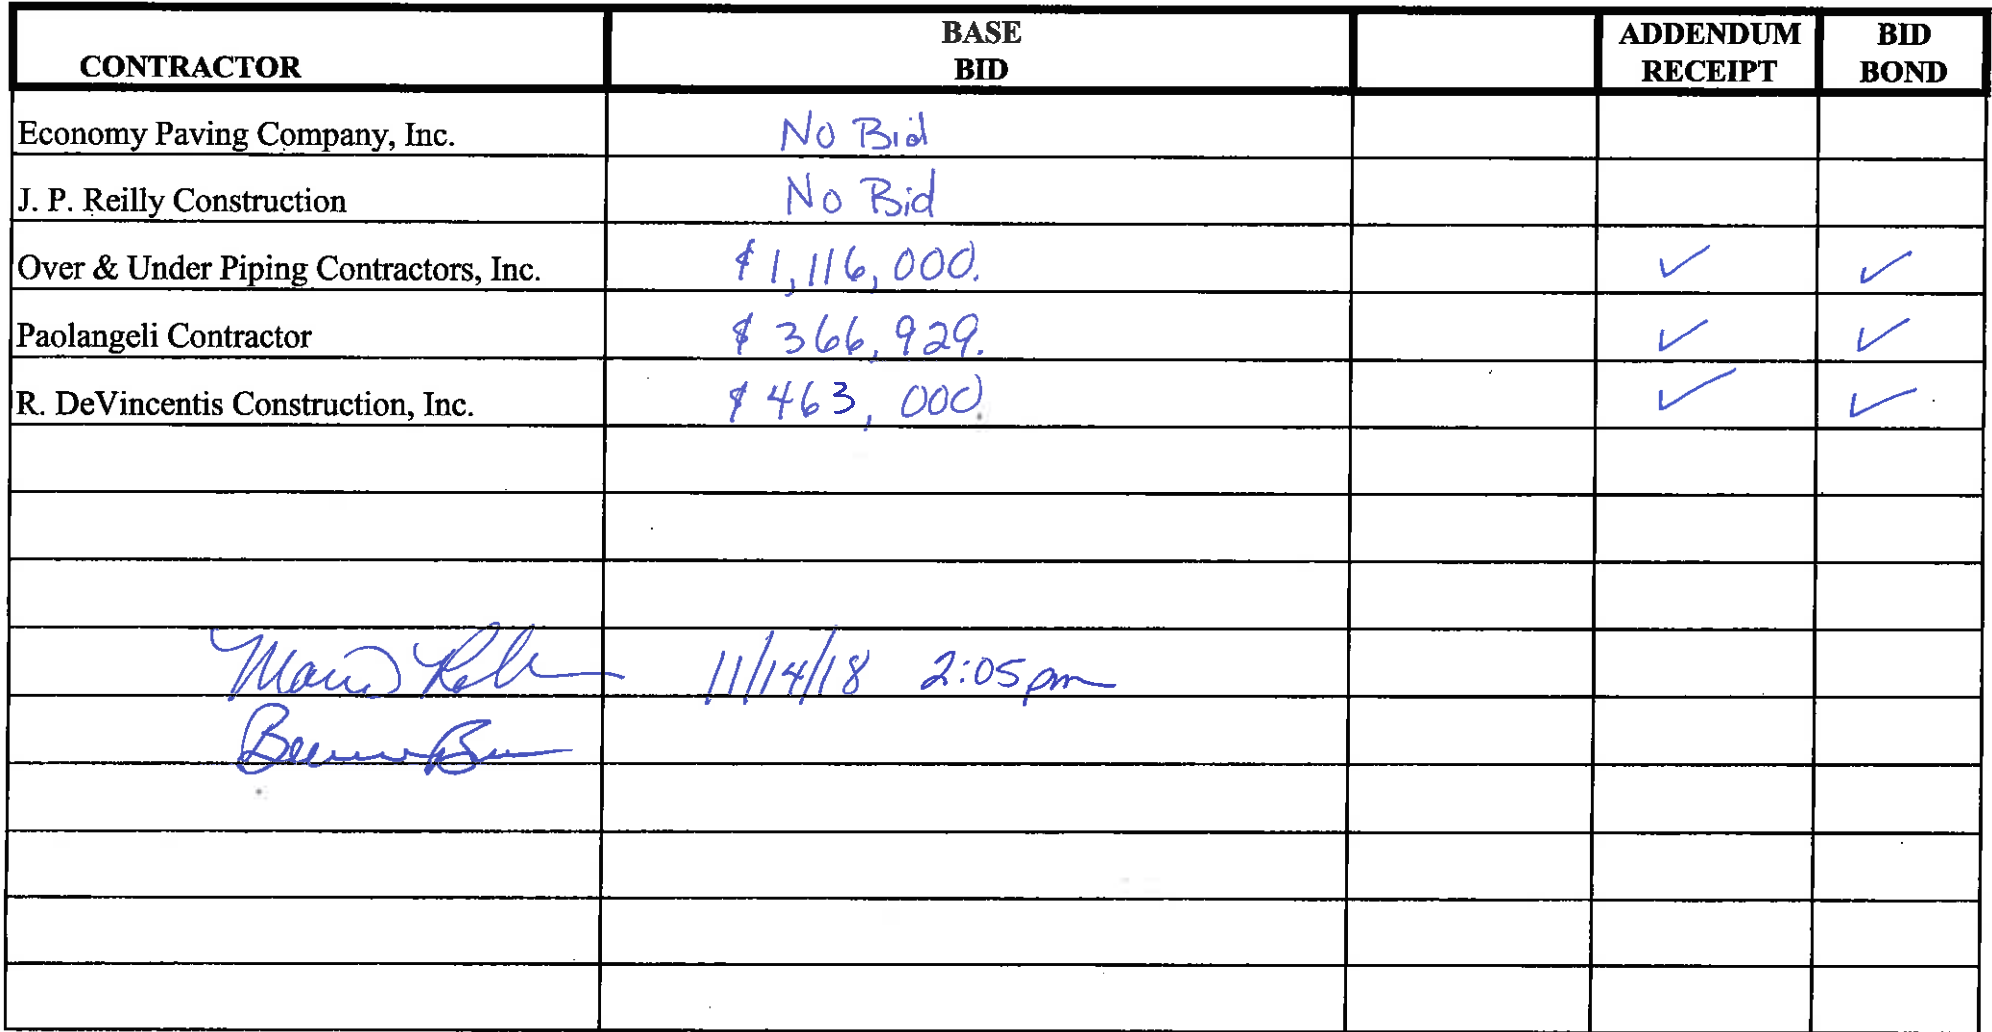 CONTRACTOR BASE BID ADDENDUM RECEIPT BID BOND
Economy Paving Company, Inc. No Bid
J. P. Reilly Construction No Bid
Over & Under Piping Contractors, Inc. $1,116,000. ✓ ✓
Paolangeli Contractor $ 366,929. ✓ ✓
R. DeVincentis Construction, Inc. $ 463,000 ✓ ✓
11/14/18 2:05pm